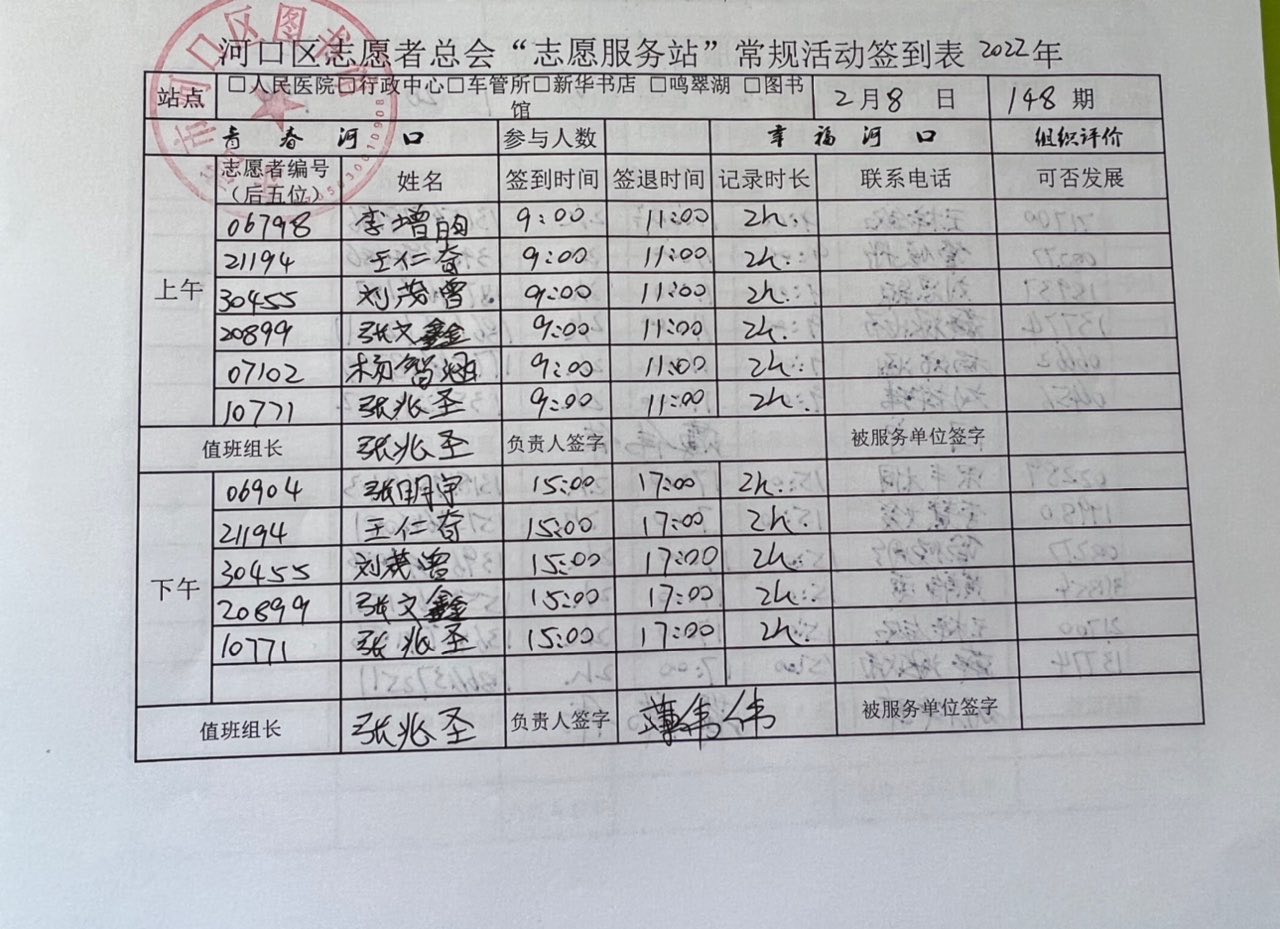 河口区志愿者总会“志愿服务站”常规活动签到表 2022年
站点 □人民医院□行政中心□车管所□新华书店 □鸣翠湖 □图书馆 2月8日 148期
青春河口 参与人数 幸福河口 组织评价
志愿者编号（后五位） 姓名 签到时间 签退时间 记录时长 联系电话 可否发展
上午
06798 李增 9:00 11:00 2h.
21194 王仁奋 9:00 11:00 2h.
30455 刘茂曾 9:00 11:00 2h.
20899 张文鑫 9:00 11:00 2h.
07102 杨智涵 9:00 11:00 2h.
10771 张兆圣 9:00 11:00 2h.
值班组长 张兆圣 负责人签字 被服务单位签字
下午
06904 张明宇 15:00 17:00 2h.
21194 王仁奋 15:00 17:00 2h.
30455 刘茂曾 15:00 17:00 2h.
20899 张文鑫 15:00 17:00 2h.
10771 张兆圣 15:00 17:00 2h.
值班组长 张兆圣 负责人签字 薄伟伟 被服务单位签字